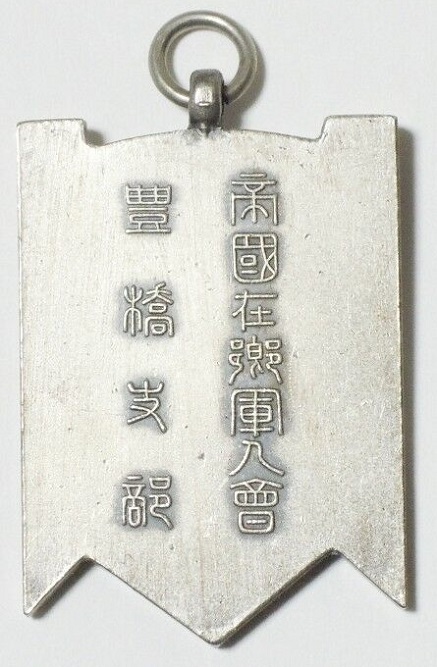 帝國在鄉軍人會
豊橋支部